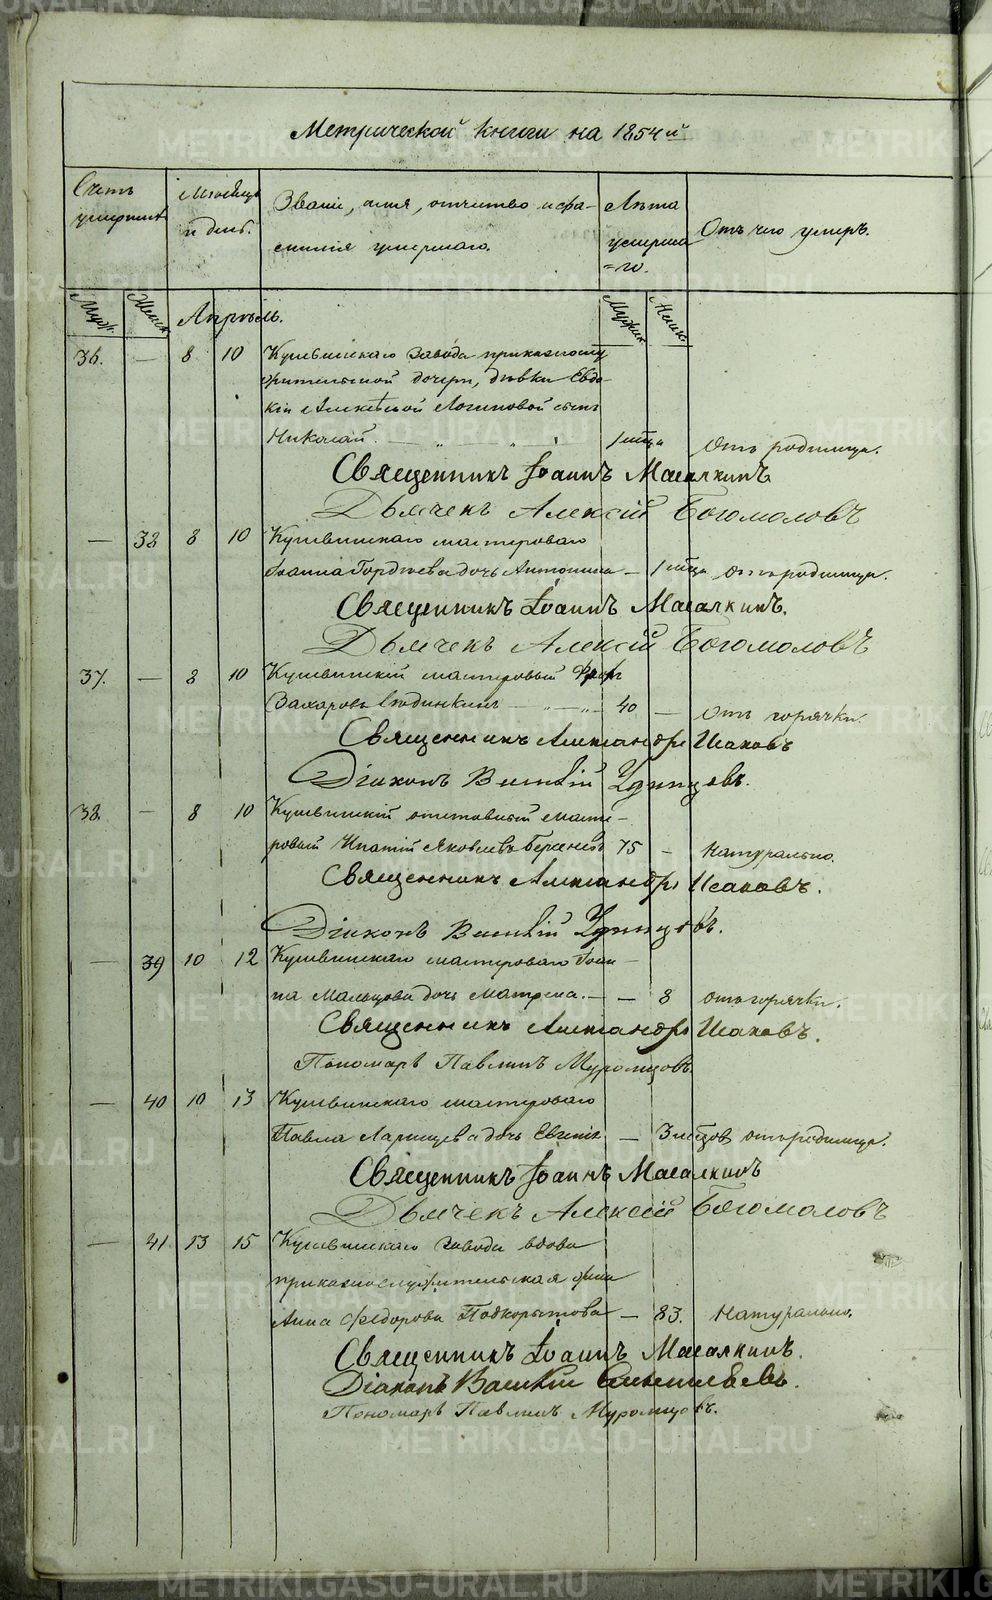 Метрической книги на 1854 й
Счетъ умершихъ
Мѣсяцъ и день.
Званіе, имя, отчество и фамилія умершаго.
Лѣта умершаго.
Отъ чего умеръ.
Муж. Женск. Апрѣль. Мужск. Женск.
36. — 8 10 Кушвинскаго завода приказнослу
жительской дочери, дѣвки Евдо-
кіи Алексѣевой Логиновой сынъ
Николай. — „ — „ — 1 мѣсц отъ родимца.
Священникъ Іоаннъ Масалкинъ
Дьячекъ Алексій Богомоловъ
— 38 8 10 Кушвинскаго мастероваго
Іоанна Гордѣева дочь Антонина — 1 мѣсц отъ родимца.
Священникъ Іоаннъ Масалкинъ.
Дьячекъ Алексій Богомоловъ
37. — 8 10 Кушвинскій мастеровый
Захаровъ — „ — „ 40 — отъ горячки.
Священникъ Александръ Исаковъ
Діаконъ Василій Удинцовъ.
38. — 8 10 Кушвинскій отставный масте-
ровый Ипатій Яковлевъ 75 — Натурально.
Священникъ Александръ Исаковъ.
Діаконъ Василій Удинцовъ.
— 39 10 12 Кушвинскаго мастероваго Іоан-
на Мальцова дочь Матрена. — — 8 отъ горячки.
Священникъ Александръ Исаковъ.
Пономарь Павлинъ Муромцовъ.
— 40 10 13 Кушвинскаго мастероваго
Павла Ларинцева дочь Евгенія — 3 мѣсцов отъ родимца.
Священникъ Іоаннъ Масалкинъ
Дьячекъ Алексій Богомоловъ
— 41 13 15 Кушвинскаго завода вдова
приказнослужительская жена
Анна Федорова Подкорытова — 83. Натурально.
Священникъ Іоаннъ Масалкинъ.
Діаконъ Василій
Пономарь Павлинъ Муромцовъ.
METRIKI.GASO-URAL.RU